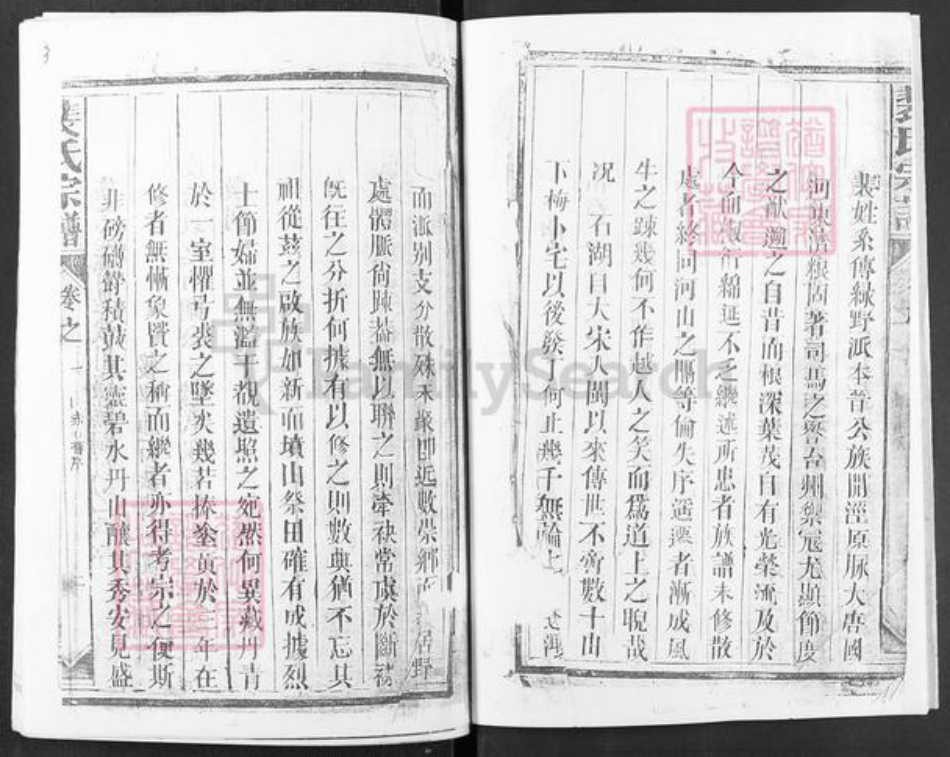 裴姓系傳綠野派本晉公族開涇原脈大唐國
河東濟根固著司馬之譽台州梨冠尤顯節度
之猷溯之自昔而根深葉茂自有光榮流及於
今而椒衍綿延不乏繼述所患者族譜未修散
處者終同河山之隔等倫失序遥遥者漸成風
牛之踈幾何不作越人之笑而爲道上之睨哉
况石湖目大宋入閩以來傳世不齊數十山
下梅卜宅以後發丁何止幾千無論
裴氏宗譜
裴氏宗譜
卷之一
而派别支分散殊未聚即近數柴鄉而居野
處體脈尚踈葢無以聯之則牽袂常虞於斷
既往之分折何據有以修之則數典猶不忘其
祖從茲之啟族如新而墳山祭田確有成據烈
士節婦並無濫于觀遺照之宛然何異藏丹青
於一室懼弓裘之墜矣幾若捧瑩黃於三年在
修者無慚象貲之稱而繼者亦得考宗之便斯
非磅礴欝積黃其靈碧水丹山釀其秀安見盛
FamilySearch